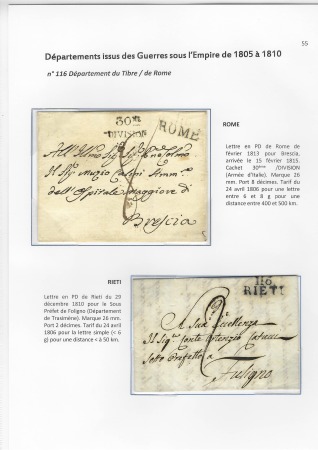 55
Départements issus des Guerres sous l'Empire de 1805 à 1810
n° 116 Département du Tibre / de Rome
30ME
DIVISION
ROME
Brescia
ROME
Lettre en PD de Rome de
février 1813 pour Brescia,
arrivée le 15 février 1815.
Cachet 30ème /DIVISION
(Armée d'Italie). Marque 26
mm. Port 8 décimes. Tarif du
24 avril 1806 pour une lettre
entre 6 et 8 g pour une
distance entre 400 et 500 km.
RIETI
Lettre en PD de Rieti du 29
décembre 1810 pour le Sous
Préfet de Foligno (Département
de Trasimène). Marque 26 mm.
Port 2 décimes. Tarif du 24 avril
1806 pour le lettre simple (< 6
g) pour une distance < à 50 km.
116
RIETI
A Sua Eccellenza
Il Sig. Conte
Sotto Prefetto a
Fuligno